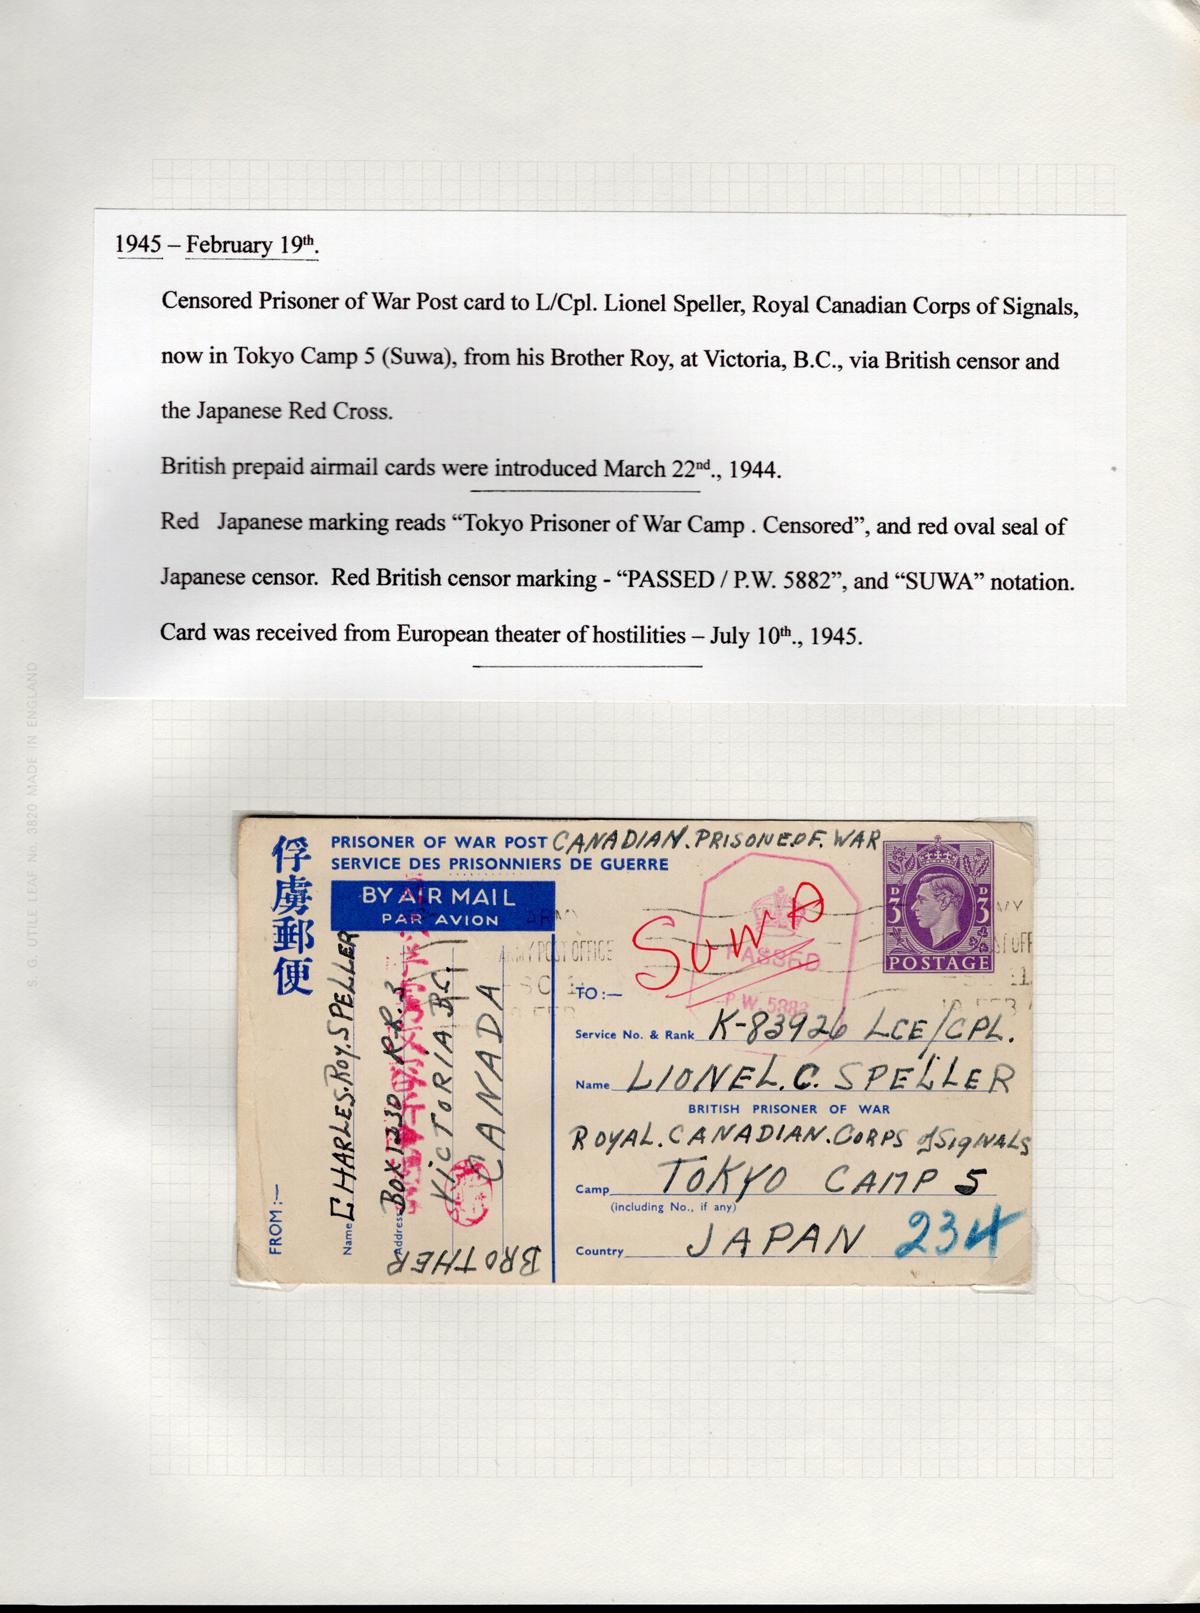 1945 – February 19th.
Censored Prisoner of War Post card to L/Cpl. Lionel Speller, Royal Canadian Corps of Signals,
now in Tokyo Camp 5 (Suwa), from his Brother Roy, at Victoria, B.C., via British censor and
the Japanese Red Cross.
British prepaid airmail cards were introduced March 22nd., 1944.
Red Japanese marking reads “Tokyo Prisoner of War Camp . Censored”, and red oval seal of
Japanese censor. Red British censor marking - “PASSED / P.W. 5882”, and “SUWA” notation.
Card was received from European theater of hostilities – July 10th., 1945.
S. G. UTILE LEAF No. 3820 MADE IN ENGLAND
俘虜郵便
PRISONER OF WAR POST CANADIAN. PRISONEOF. WAR
SERVICE DES PRISONNIERS DE GUERRE
BY AIR MAIL
PAR AVION
FROM:—
Name CHARLES. ROY. SPELLER
Address BOX 1230 R.R. 3
VICTORIA B.C.
CANADA
BROTHER
ARMY POST OFFICE
SUWA
PASSED
P.W. 5882
3D 3D
POSTAGE
TO:—
Service No. & Rank K-83926 LCE/CPL.
Name LIONEL. C. SPELLER
BRITISH PRISONER OF WAR
ROYAL. CANADIAN. CORPS of SIgNALS
Camp TOKYO CAMP 5
(including No., if any)
Country JAPAN 234